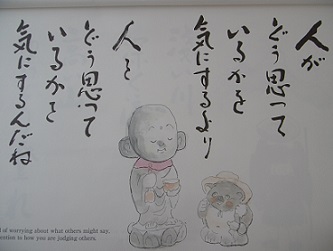 人が
どう思って
いるかを
気にするより
人を
どう思って
いるかを
気にするんだね
d of worrying about what others might say,
tention to how you are judging others.